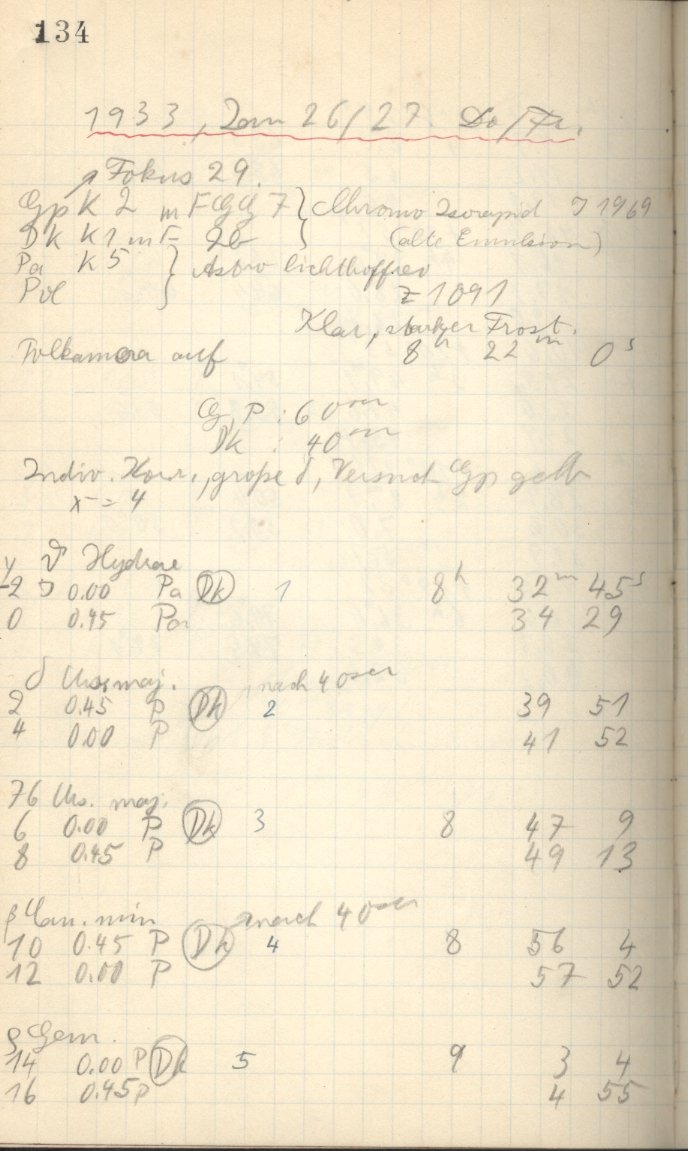 134
1933, Jan 26/27. Do/Fr.
Fokus 29.
Gp K 2 m F GG 7 } Chromo Isorapid J 1969
Dk K1 m F 2b } (alte Emulsion)
Pa K 5 } Astro lichthoffrei
Pol } Z 1091
Klar, starker Frost.
Polkamera auf 8h 22m 0s
G, P : 60 sec
Dk : 40 sec
Indiv. Korr., große δ, Versuch Gp gelb
x = 4
y ϑ Hydrae
-2 0.00 Pa Dk 1 8h 32m 45s
0 0.45 Pa 34 29
δ Urs. maj. nach 40sec
2 0.45 P Dk 2 39 51
4 0.00 P 41 52
76 Urs. maj.
6 0.00 P Dk 3 8 47 9
8 0.45 P 49 13
β Can. min nach 40sec
10 0.45 P Dk 4 8 56 4
12 0.00 P 57 52
Gem.
14 0.00 P Dk 5 9 3 4
16 0.45 P 4 55